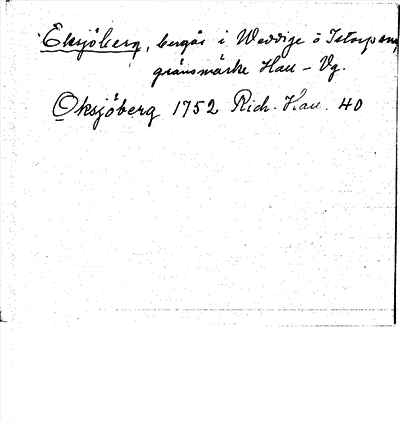 Eksjöberg, bergås i Weddige o Istorps
gränsmärke Hall - Vg.
Oksjöberg 1752 Rich. Hall. 40